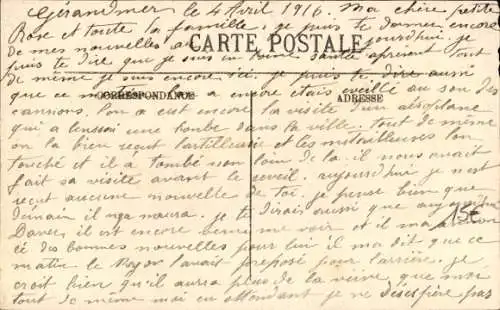 Gérardmer le 4 Avril 1916 Ma chère petite
Rose et toute la famille. je puis te donner encore
de mes nouvelles aujourd'hui. je
CARTE POSTALE
puis te dire que je suis en bonne santé à présent tout
de même je suis encore ici. je puis te dire aussi
que ce matin l'on a encore était eveillé au son des
CORRESPONDANCE
ADRESSE
canons. l'on a est encore la visite d'un aéroplane
qui a laussait une bombe dans la ville. tout de même
on la bien reçut l'artilleurie et les mitrailleuses l'on
touché et il a tombé non loin de la. il nous avait
fait sa visite avant le reveil. aujourd'hui je n'est
reçut aucune nouvelle de toi. je pense bien que
demain il n'y a naura. je te dirais aussi que
15€
il est encore venu me voir et il m'a
té des bonnes nouvelles pour lui il m'a dit que ce
matin le Major l'avait proposé pour l'arrière. je
croit bien qu'il aura plus de la veine que moi
tout de même moi en attendant je ne désespère pas